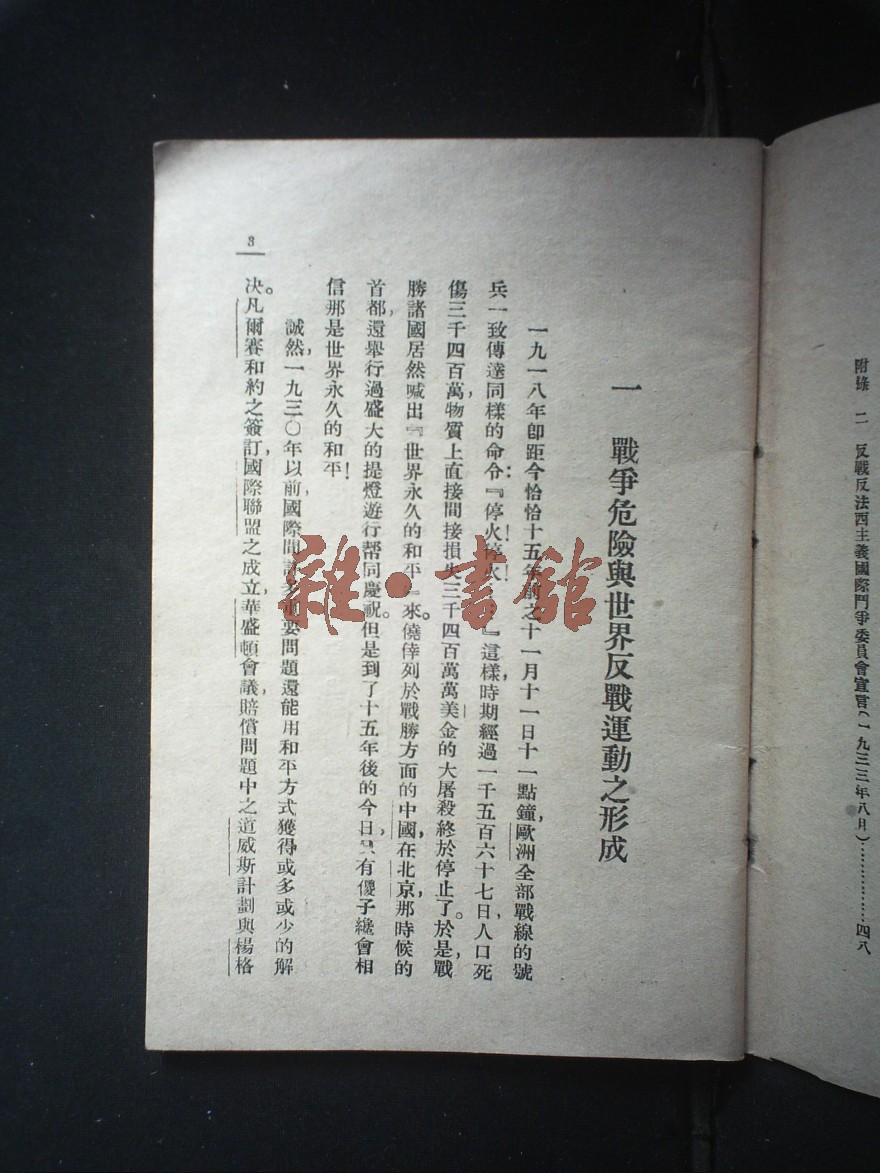 附錄 二 反戰反法西主義國際鬥爭委員會宣言(一九三三年八月)………………四八
一 戰爭危險與世界反戰運動之形成
一九一八年卽距今恰恰十五年前之十一月十一日十一點鐘,歐洲全部戰線的號
兵一致傳達同樣的命令:『停火!停火!…』這樣,時期經過一千五百六十七日,人口死
傷三千四百萬,物質上直接間接損失三千四百萬萬美金的大屠殺終於停止了。於是,戰
勝諸國居然喊出『世界永久的和平』來。僥倖列於戰勝方面的中國,在北京,那時候的
首都,還舉行過盛大的提燈遊行幫同慶祝。但是到了十五年後的今日,只有傻子纔會相
信那是世界永久的和平!
誠然,一九三〇年以前,國際間許多重要問題還能用和平方式獲得或多或少的解
决。凡爾賽和約之簽訂,國際聯盟之成立,華盛頓會議,賠償問題中之道威斯計劃與楊格
3
雜·書館